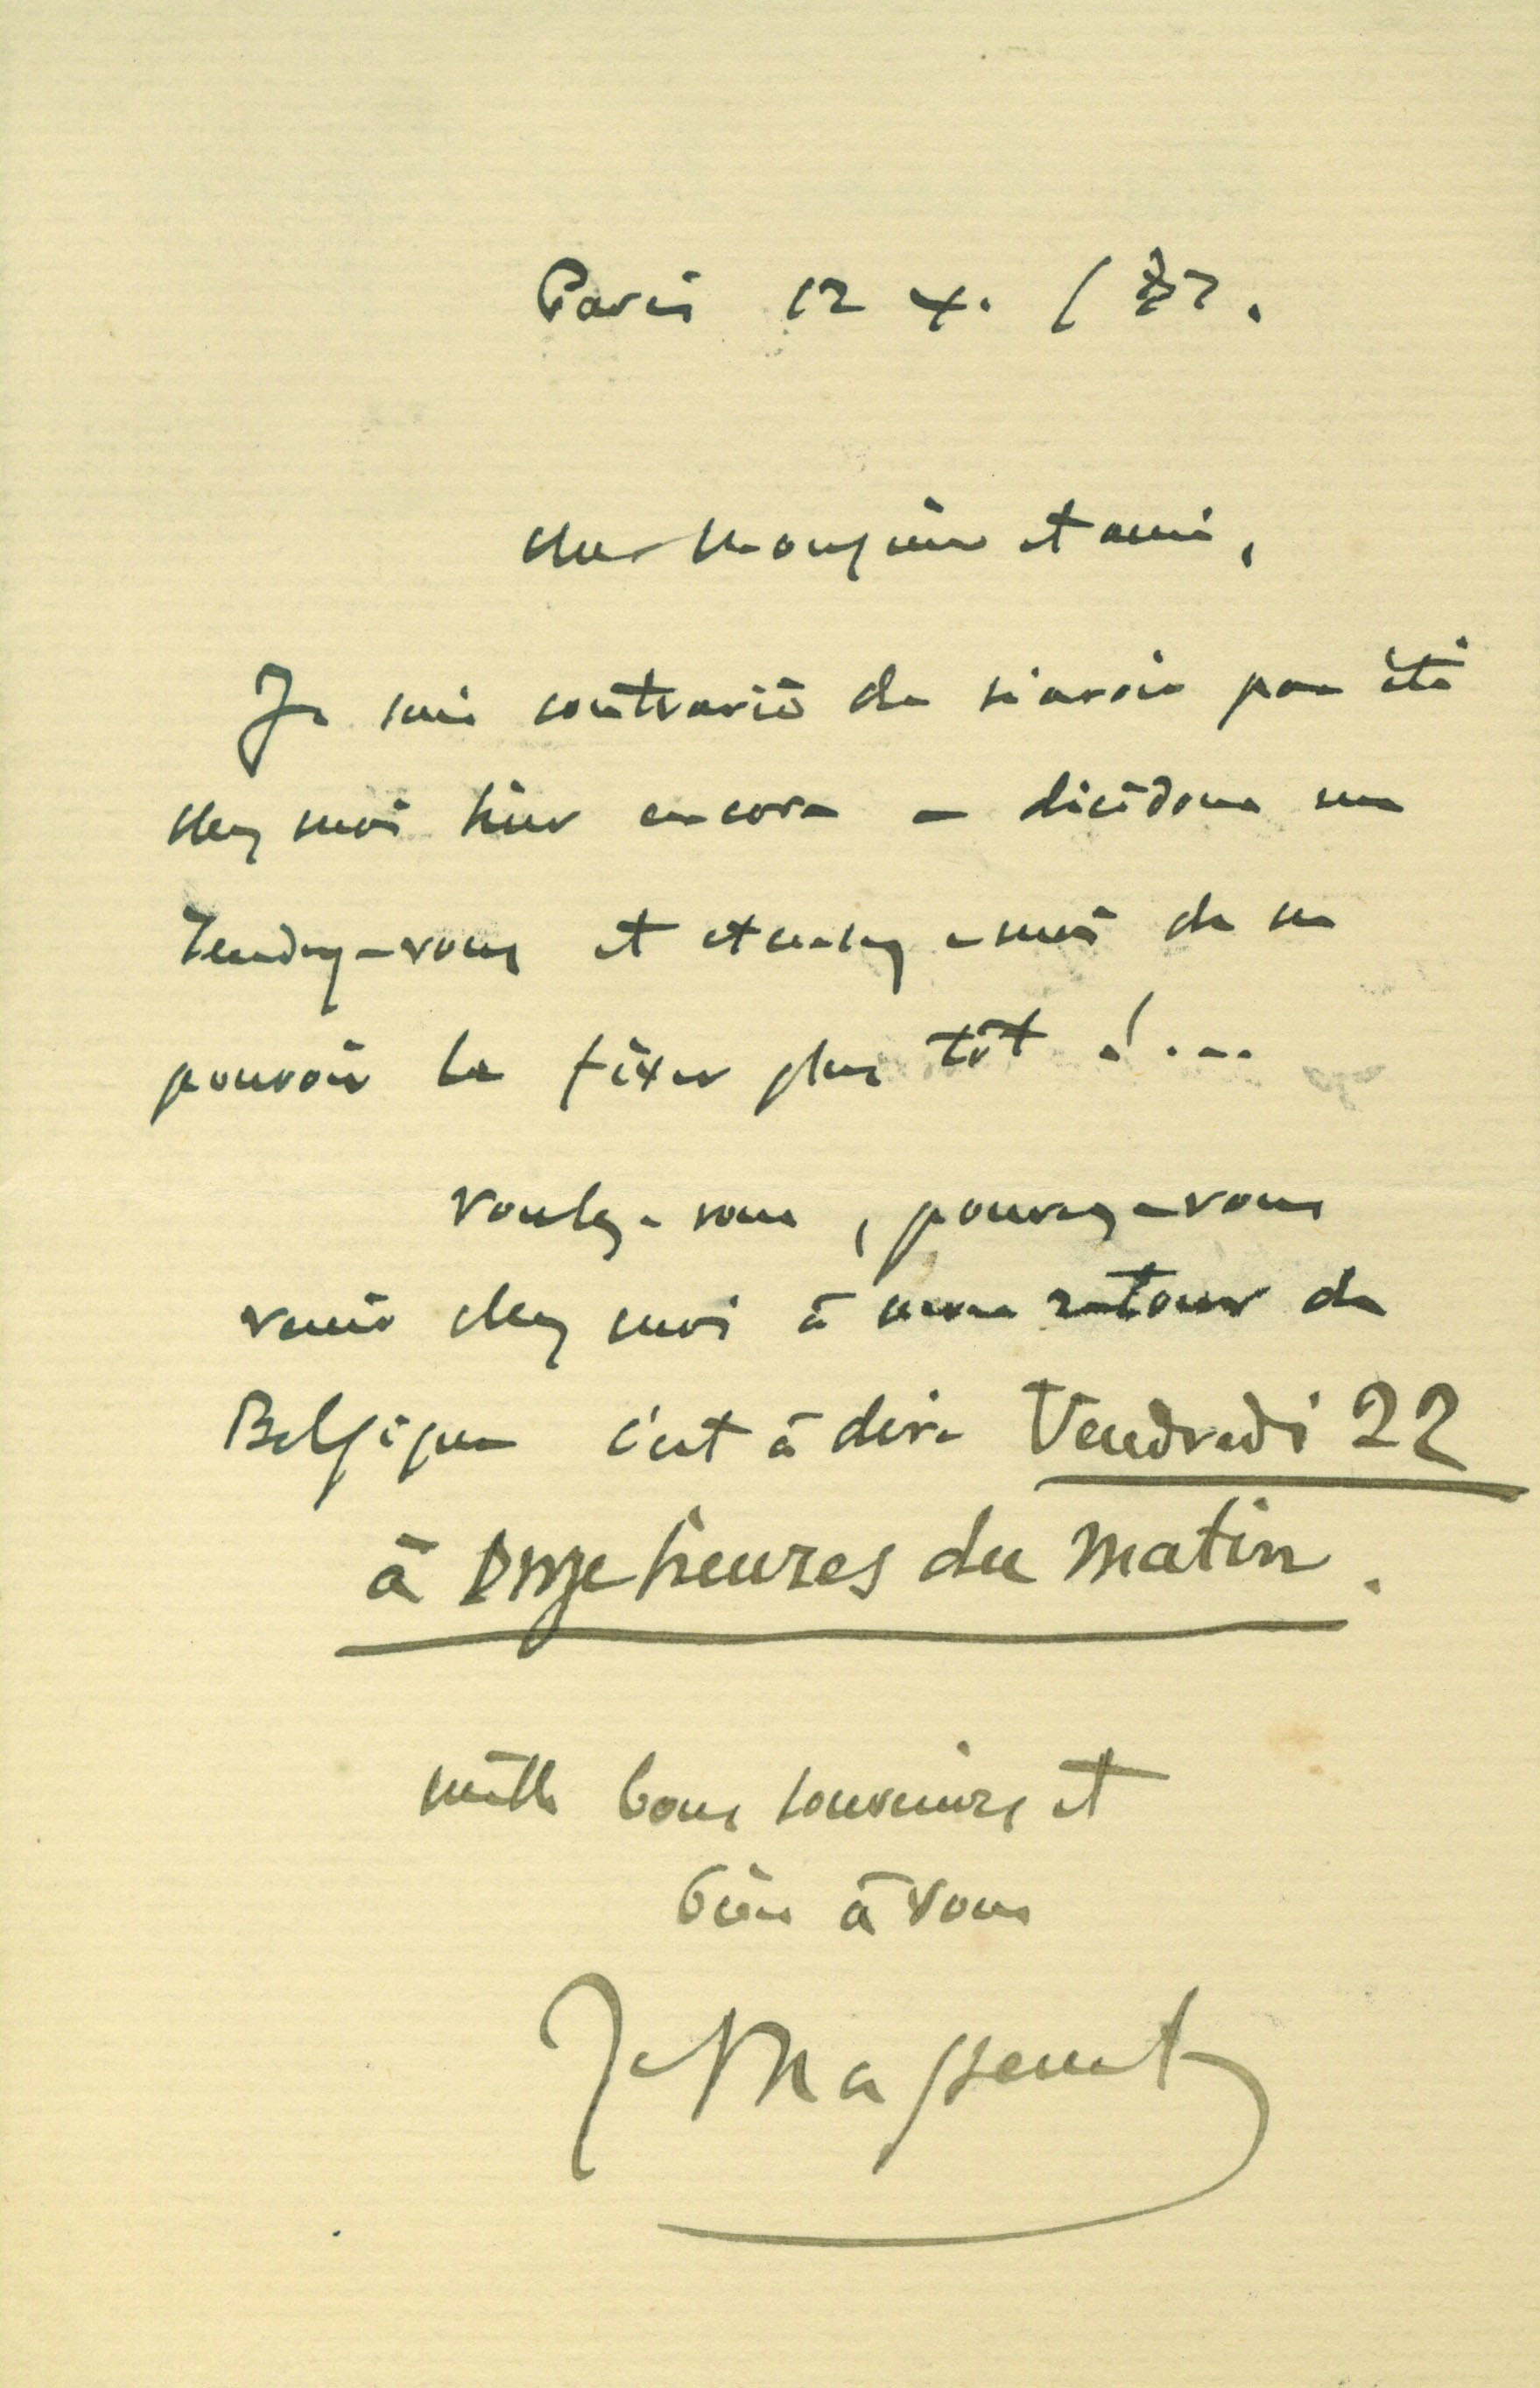 Paris 12 X. /87.
cher Monsieur et ami,
Je suis contrarié de n'avoir pas été
chez moi hier encore – décidons un
rendez-vous et excusez-moi de ne
pouvoir le fixer plus tôt !...
Voulez-vous, pouvez-vous
venir chez moi à mon retour de
Belgique c'est à dire Vendredi 22
à onze heures du matin.
mille bons souvenirs et
bien à vous
J. Massenet